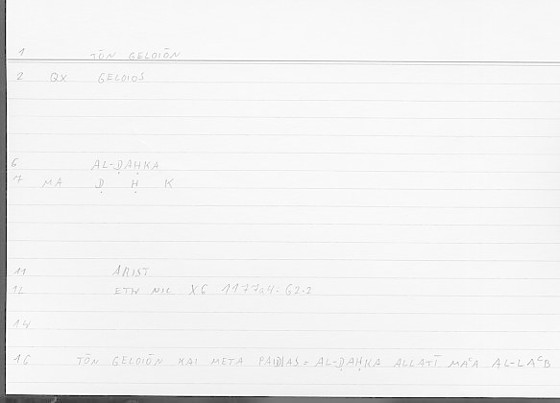 1 TŌN GELOIŌN
2 QX GELOIOS
6 AL-ḌAḤKA
7 MA Ḍ Ḥ K
11 ARIST
12 ETH NIC X6 1177a4-62.2
14
16 TŌN GELOIŌN KAI META PAIDIAS = AL-ḌAḤKA ALLATĪ MAᶜA AL-LAᶜB